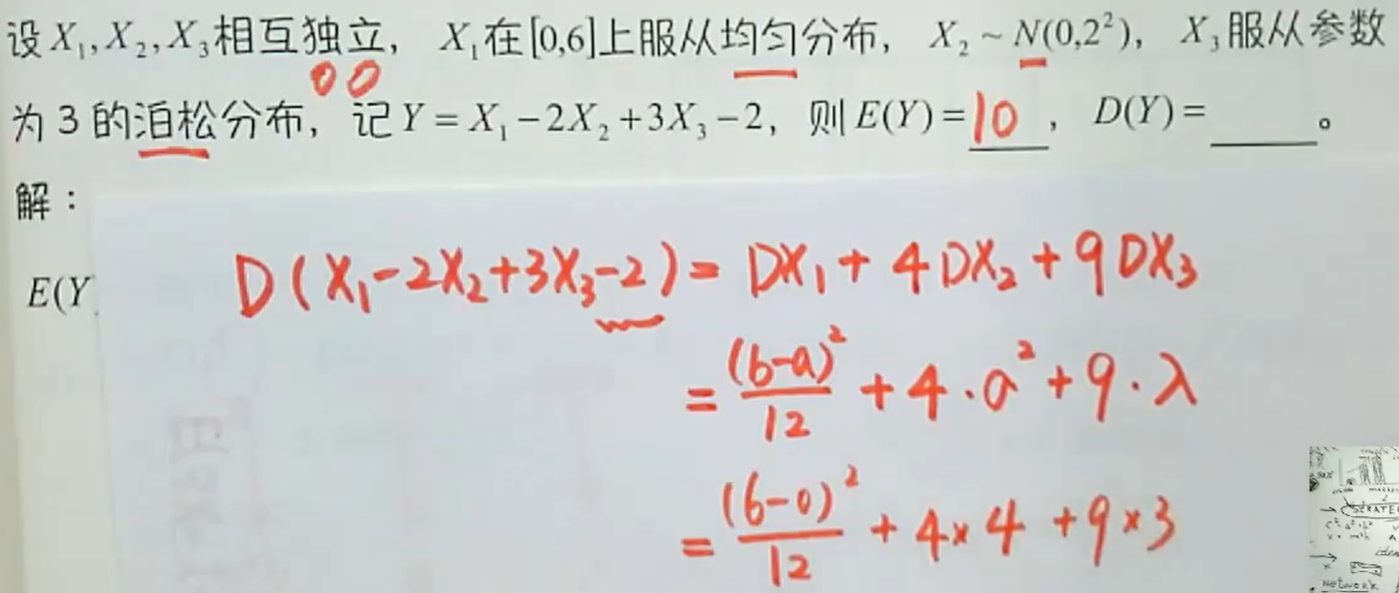 设 X₁, X₂, X₃ 相互独立, X₁ 在 [0,6] 上服从均匀分布, X₂ ~ N(0,2²), X₃ 服从参数
为 3 的泊松分布, 记 Y = X₁ − 2X₂ + 3X₃ − 2, 则 E(Y) = 10, D(Y) = ____。
解：
E(Y
D(X₁−2X₂+3X₃−2) = DX₁ + 4DX₂ + 9DX₃
= (b−a)²/12 + 4·σ² + 9·λ
= (6−0)²/12 + 4×4 + 9×3